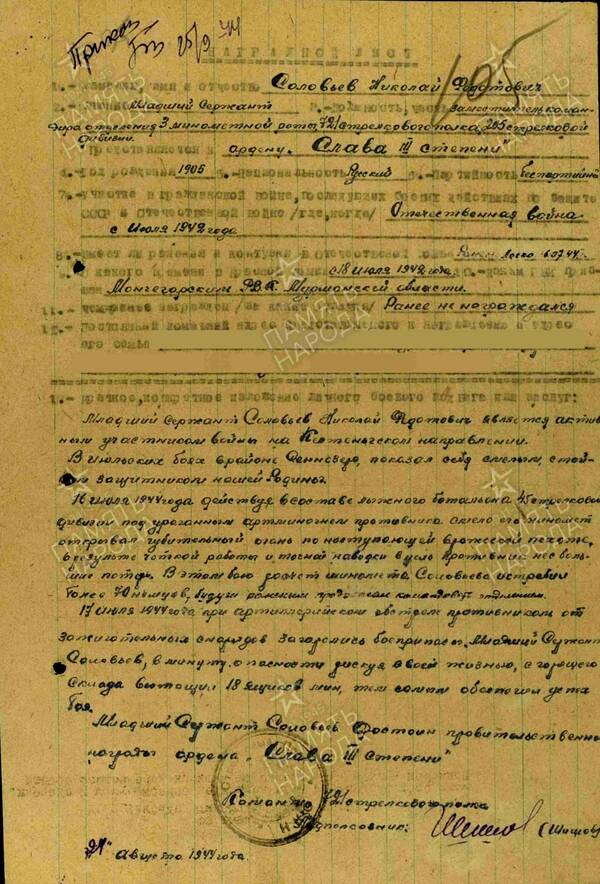 Приказ
25/9 44
105
НАГРАДНОЙ ЛИСТ
1.- Фамилия, имя и отчество Соловьев Николай Федотович
2.- Звание Младший Сержант 3.- Должность, часть заместитель коман-
дира отделения 3 минометной роты 721 стрелкового полка, 205 стрелковой
дивизии.
Представляется к ордену "Слава III степени"
4.- Год рождения 1906 5.- Национальность Русский 6.- Партийность беспартийный
7.- участие в гражданской войне, последующих боевых действиях по защите
СССР и отечественной войне /где, когда/ Отечественная война
с Июля 1942 года
8.- Имеет ли ранения и контузии в отечественной войне Ранен легко
9.- С какого времени в Красной армии с 18 июля 1942 года 10.- каким РВК призван
Мончегорским РВК Мурманской области.
11.- Чем ранее награжден /за какие отличия/ Ранее не награждался
12.- Постоянный домашний адрес представляемого к награждению и адрес
его семьи
1.- Краткое, конкретное изложение личного боевого подвига или заслуг:
Младший сержант Соловьев Николай Федотович является актив-
ным участником войны на Кестеньгском направлении.
В Июльских боях в районе показал себя смелым, стой-
ким защитником нашей Родины.
16 Июля 1944 года действуя в составе лыжного батальона 45 стрелковой
дивизии под ураганным артминогнем противника смело его миномет
открывал губительный огонь по наступающей вражеской пехоте,
в результате четкой работы и точной наводки в цель противник нес боль-
шие потери. В этом бою расчет миномета Соловьева истребил
более 70 немцев, будучи раненым продолжал командовать отделением.
17 Июля 1944 года при артиллерийском обстреле противником от
зажигательных снарядов загорелись боеприпасы. Младший Сержант
Соловьев, в минуту опасности рискуя своей жизнью, с горящего
склада вытащил 18 ящиков мин, тем самым обеспечил успех
боя.
Младший Сержант Соловьев достоин правительственной
награды ордена "Слава III степени"
Командир 721 стрелкового полка
Подполковник: (Шишов)
"21" Августа 1944 года.
ПАМЯТЬ НАРОДА